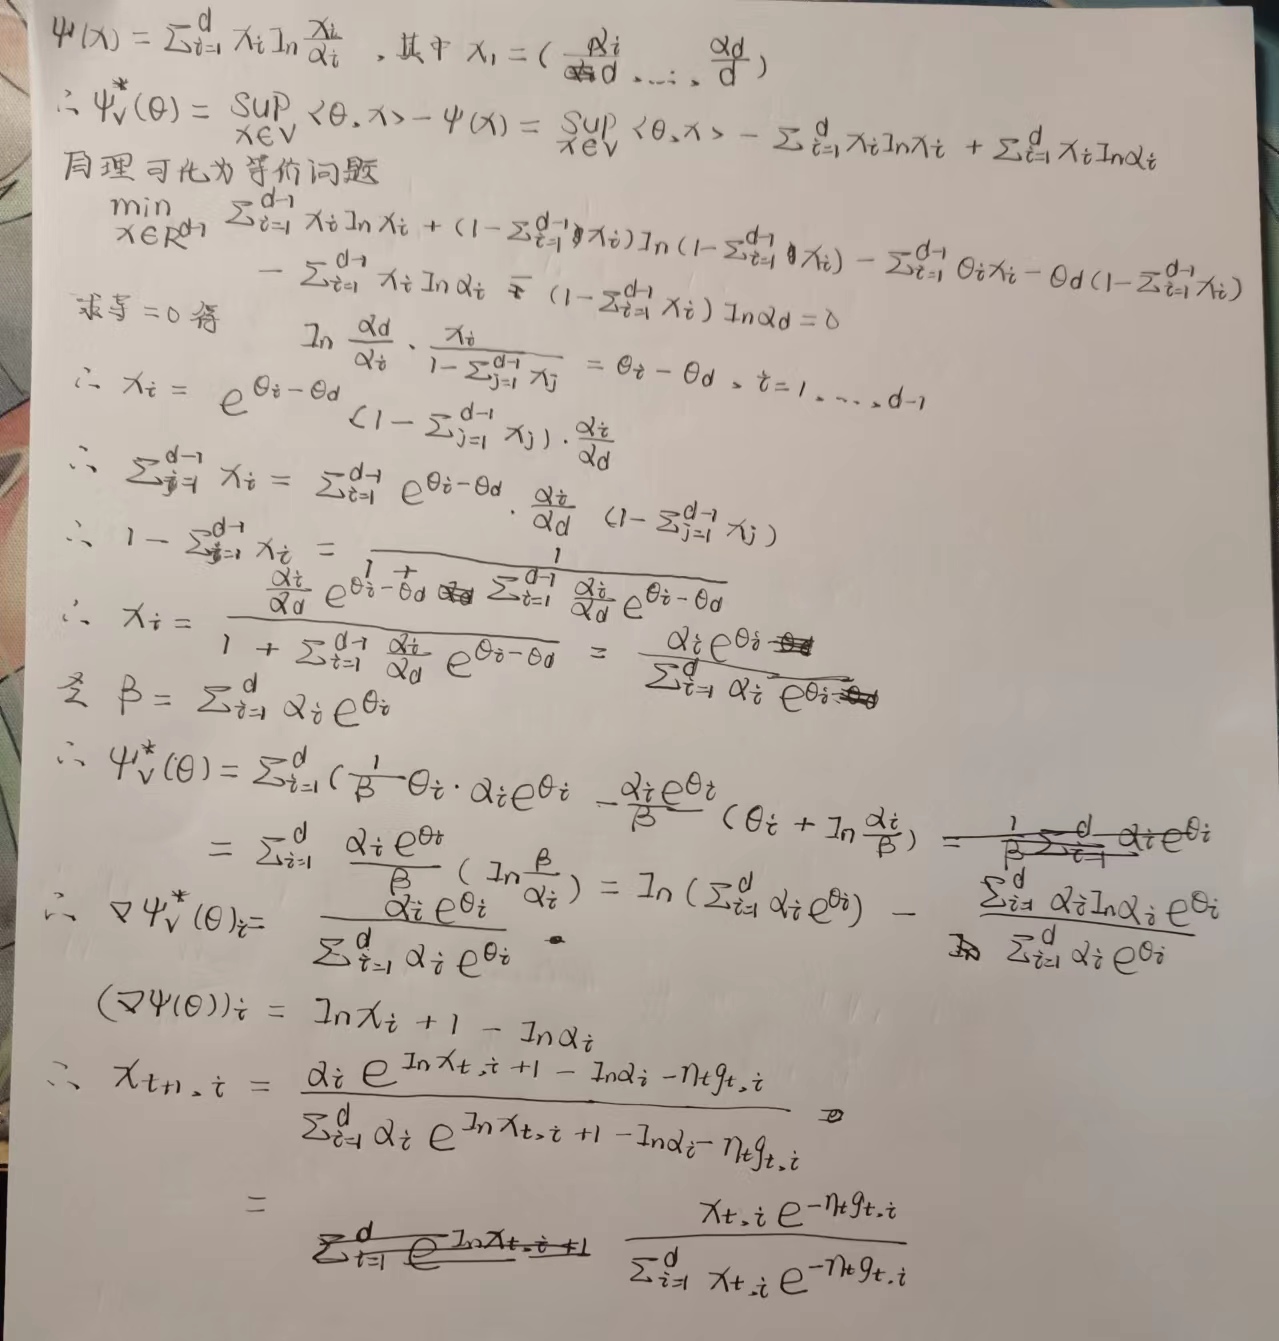 ψ(x) = Σ_{i=1}^{d} x_i ln x_i/α_i , 其中 x_1 = (α_i/d , ... , α_d/d)
∴ ψ*_V(θ) = sup_{x∈V} <θ,x> - ψ(x) = sup_{x∈V} <θ,x> - Σ_{i=1}^{d} x_i ln x_i + Σ_{i=1}^{d} x_i ln α_i
同理可化为等价问题
min_{x∈R^{d-1}} Σ_{i=1}^{d-1} x_i ln x_i + (1-Σ_{i=1}^{d-1} x_i) ln(1-Σ_{i=1}^{d-1} x_i) - Σ_{i=1}^{d-1} θ_i x_i - θ_d(1-Σ_{i=1}^{d-1} x_i)
- Σ_{i=1}^{d-1} x_i ln α_i - (1-Σ_{i=1}^{d-1} x_i) ln α_d = 0
求导=0得
ln α_d/α_i · x_i/(1-Σ_{j=1}^{d-1} x_j) = θ_i - θ_d , i=1, ..., d-1
∴ x_i = e^{θ_i-θ_d} (1-Σ_{j=1}^{d-1} x_j) · α_i/α_d
∴ Σ_{i=1}^{d-1} x_i = Σ_{i=1}^{d-1} e^{θ_i-θ_d} · α_i/α_d (1-Σ_{j=1}^{d-1} x_j)
∴ 1-Σ_{i=1}^{d-1} x_i = 1/(1 + Σ_{i=1}^{d-1} α_i/α_d e^{θ_i-θ_d})
∴ x_i = (α_i/α_d e^{θ_i-θ_d})/(1 + Σ_{i=1}^{d-1} α_i/α_d e^{θ_i-θ_d}) = α_i e^{θ_i}/(Σ_{i=1}^{d} α_i e^{θ_i})
令 β = Σ_{i=1}^{d} α_i e^{θ_i}
∴ ψ*_V(θ) = Σ_{i=1}^{d} (1/β θ_i · α_i e^{θ_i} - α_i e^{θ_i}/β (θ_i + ln α_i/β) = 1/β Σ_{i=1}^{d} α_i e^{θ_i}
= Σ_{i=1}^{d} α_i e^{θ_i}/β (ln β/α_i) = ln(Σ_{i=1}^{d} α_i e^{θ_i}) - (Σ_{i=1}^{d} α_i ln α_i e^{θ_i})/(Σ_{i=1}^{d} α_i e^{θ_i})
∴ ∇ψ*_V(θ)_i = α_i e^{θ_i}/(Σ_{i=1}^{d} α_i e^{θ_i})
(∇ψ(θ))_i = ln x_i + 1 - ln α_i
∴ x_{t+1,i} = (α_i e^{ln x_{t,i} + 1 - ln α_i - η_t g_{t,i}})/(Σ_{i=1}^{d} α_i e^{ln x_{t,i} + 1 - ln α_i - η_t g_{t,i}})
= (x_{t,i} e^{-η_t g_{t,i}})/(Σ_{i=1}^{d} x_{t,i} e^{-η_t g_{t,i}})